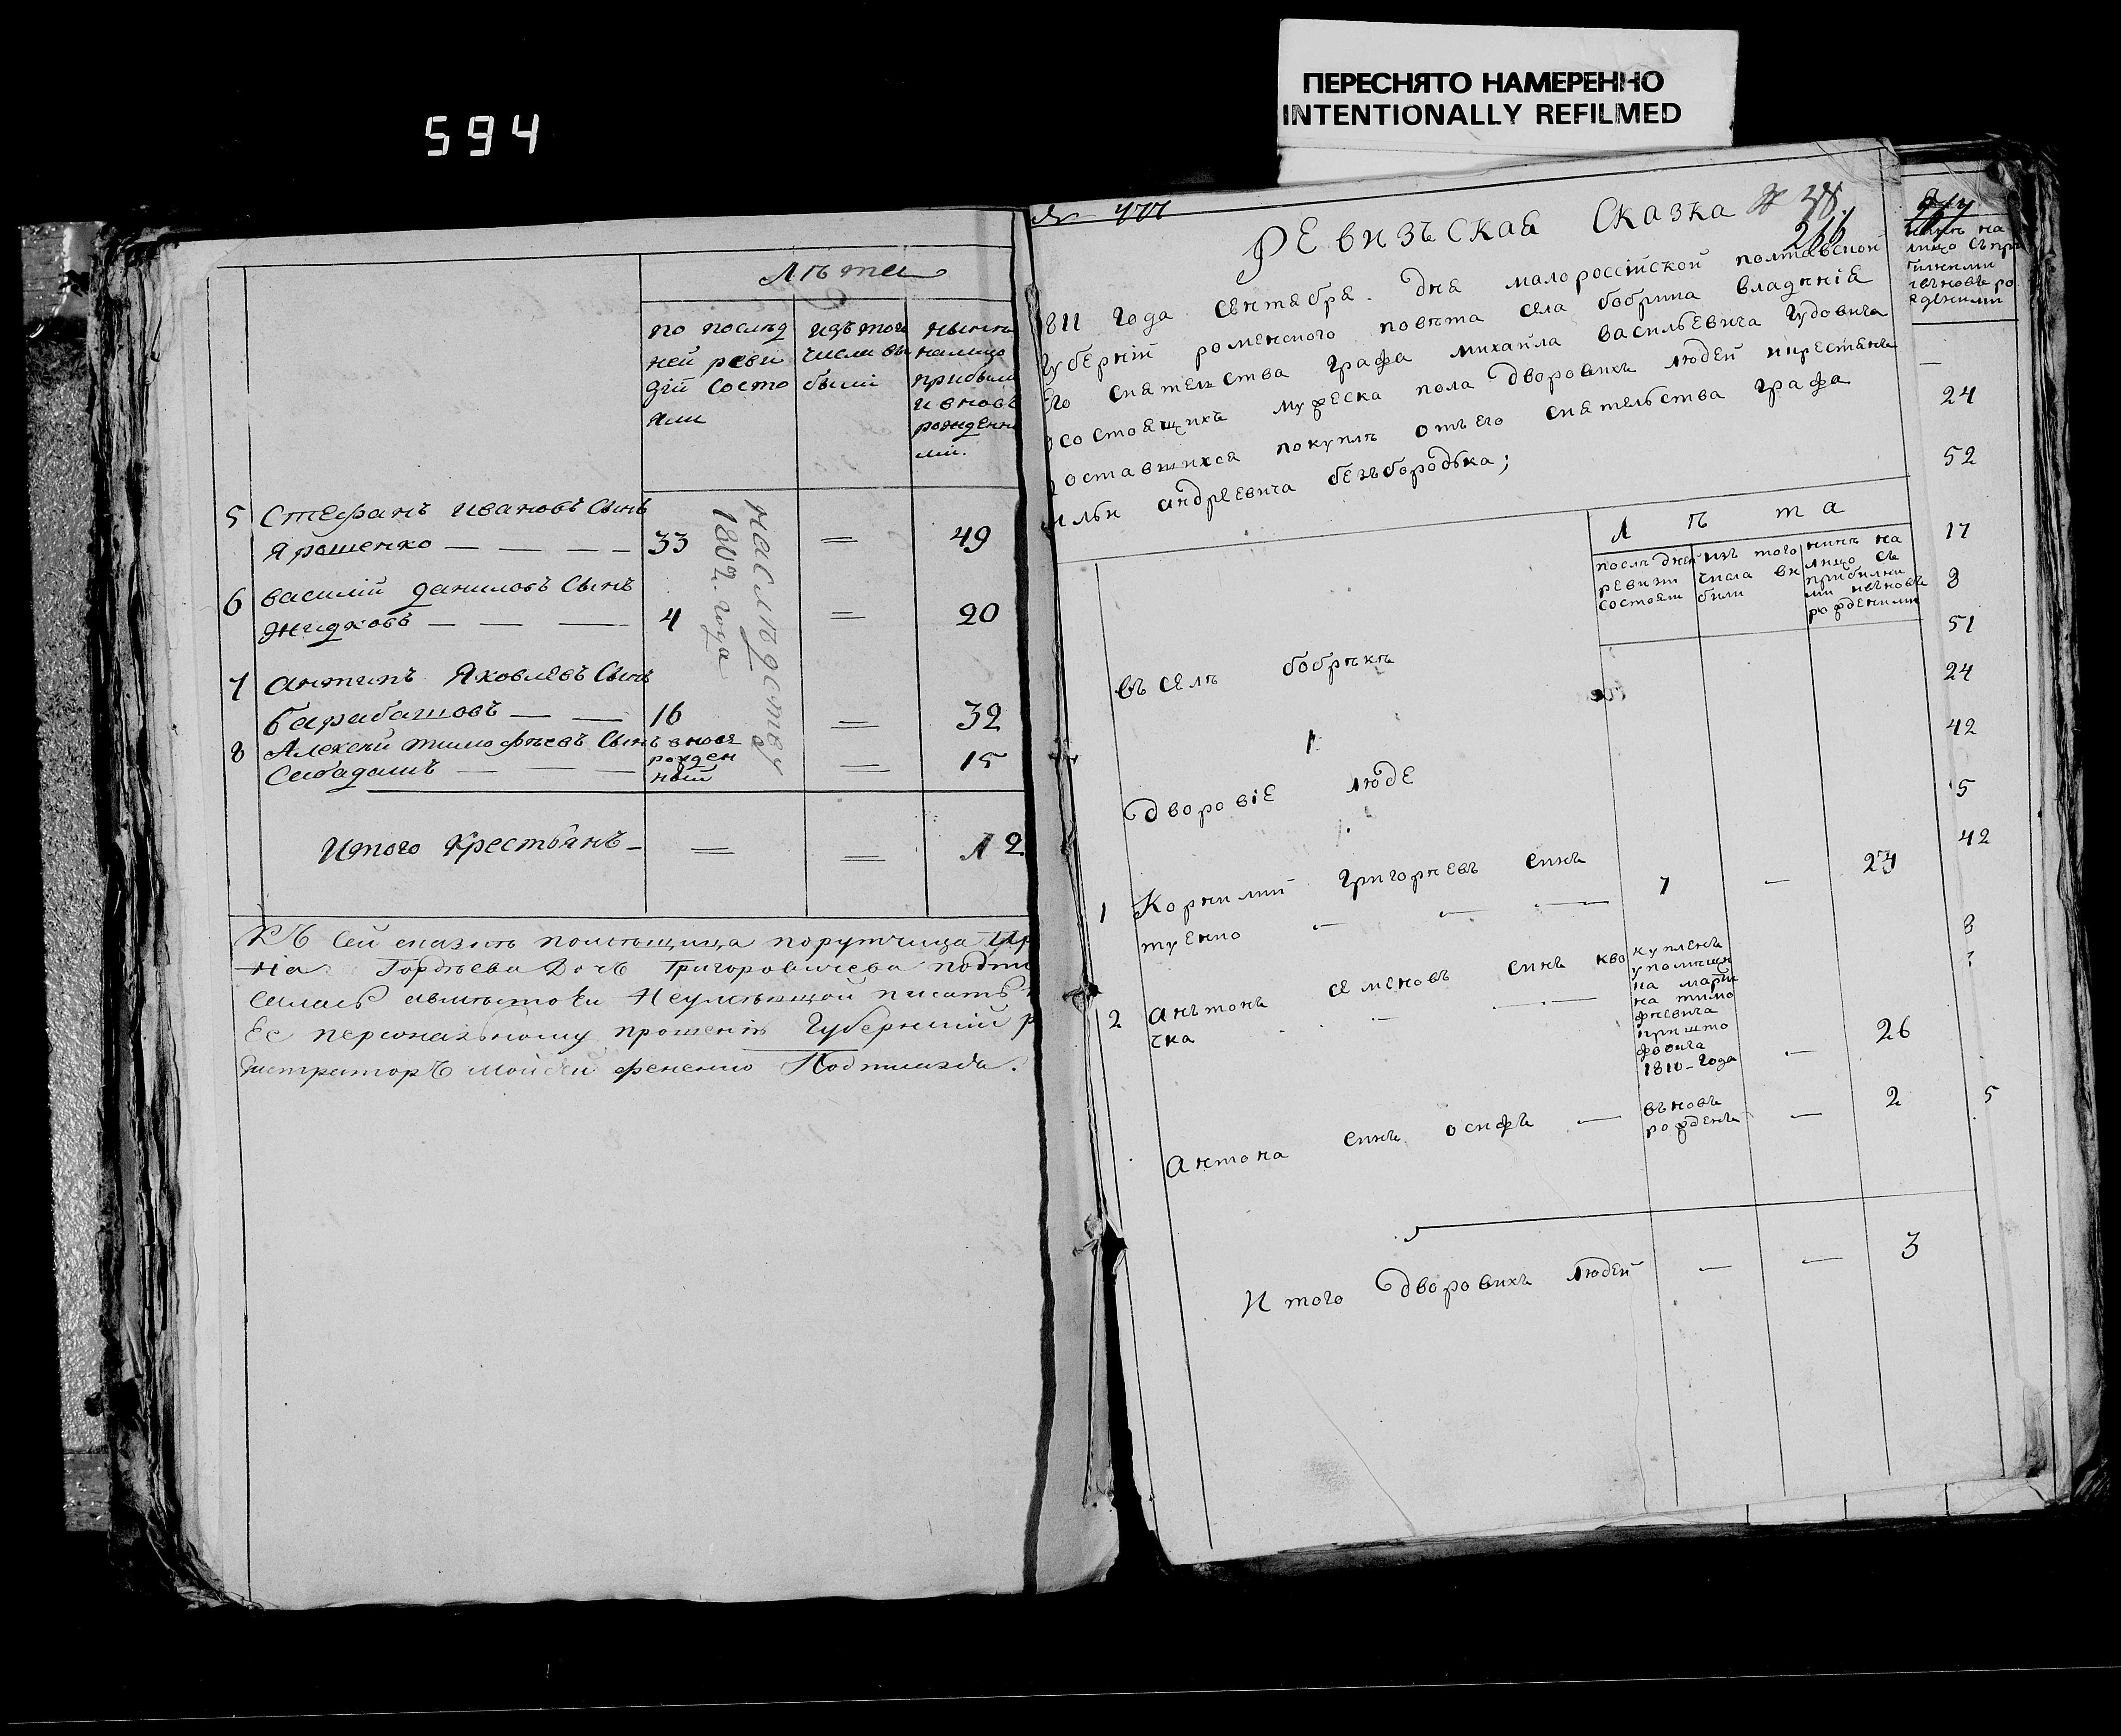 594
ПЕРЕСНЯТО НАМЕРЕННО
INTENTIONALLY REFILMED
Лѣта
по послѣд
ней реви
зіи состо
яли
изъ того
числа вы
были
нынѣ
налицо
прибыли
и вновь
рожденн
ми.
5 Стефанъ Ивановъ Сынъ
Ярошенко — — — — 33 = 49
6 василій даниловъ Сынъ
Жидковъ — — — 4 = 20
7 антипъ Яковлевъ Сынъ
барабашовъ — — 16 = 32
8 Алексѣй тимофѣевъ Сынъ вновь
рожден
ной
— — — = 15
наслѣдству
1802. года
Итого крестьянъ — = = 12
Къ сей сказкѣ помѣщица порутчица
Гордѣева Дочь Григоровичева
неумѣющой писать
Ее персональному прошенію Губернскій
Моисей фененко
№ 477
РЕвизъская Сказка № 38.
266
1811 года сентабра. дна малороссійской полтавской
губерніи роменского повѣта села бобрика владѣніа
Его сиателства графа михайла василЬевича гудовича
состоащихъ мужеска пола дворовихъ людей икрестьанъ
оставшихса покуплѣ отъ его сиателства графа
ильи андрЕевича безъбородька;
Л ѣ т а
послѣдней
ревизіи
состоали
изъ того
числа ви
били
нинѣ на
лицо съ
прибилы
ми ивъновь
рожденими
въ селѣ бобрѣкѣ
1
дворовіЕ людЕ
1 Корнилий григориевъ синъ
туЕнко — — — 7 — 27
2 анътонъ семЕновъ синъ кво
чка — —
купленъ
упомѣщи
ка март
на тимо
фиевича
кришто
фовича
1810-года — 26
антона синъ осифъ — вьновь
рожденъ — 2
Итого дворовихъ людей — — 3
нинѣ на
лицо съпри
билими
ивъновь ро
жденими
—
24
52
17
8
51
24
42
5
42
8
5